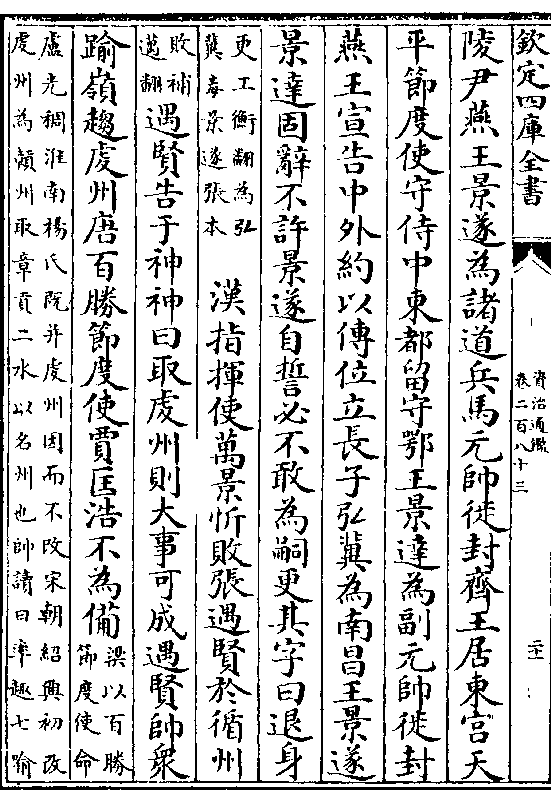 欽定四庫全書
資治通鑑
卷二百八十三
陵尹燕王景遂為諸道兵馬元帥徙封齊王居東宮天
平節度使守侍中東都留守鄂王景達為副元帥徙封
燕王宣告中外約以傳位立長子弘冀為南昌王景遂
景達固辭不許景遂自誓必不敢為嗣更其字曰退身
更工衡翻為弘
冀毒景遂張本
漢指揮使萬景忻敗張遇賢於循州
敗補
邁翻
遇賢告于神神曰取虔州則大事可成遇賢帥衆
踰嶺趨虔州唐百勝節度使賈匡浩不為備
梁以百勝
節度使命
盧光稠淮南楊氏既并虔州因而不改宋朝紹興初改
虔州為贛州取章貢二水以名州也帥讀曰率趣七踰